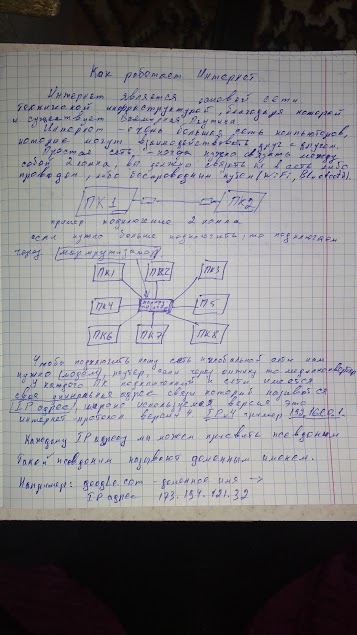 Как работает Интернет
Интернет является основой сети
технической инфраструктурой, благодаря которой
и существует Всемирная Паутина
Интернет - очень большая сеть компьютеров,
которые могут взаимодействовать друг с другом.
Простая сеть - когда нужно связать между
собой 2 компа, то должно связать их в сеть либо
проводом, либо беспроводным путем (WiFi, Bluetooth).
ПК1 ПК2
пример подключение 2 компа
если нужно больше подключить, то подключаем
через маршрутизатор
ПК1 ПК2 ПК3
ПК4 П5
ПК6 ПК7 ПК8
Чтобы подключить нашу сеть к глобальной сети нам
нужно (модем), роутер если через оптику то медиаконвертер
У каждого ПК подключенный к сети имеется
свой уникальный адрес связи который называется
IP адрес, широко используемая версия это
интернет протокол версии 4 IPv4 пример 192.168.0.1.
Каждому IP адресу мы можем присвоить псевдоним
Такой псевдоним называют доменным именем.
Например: google.com - доменное имя →
IP адрес 173.194.121.32